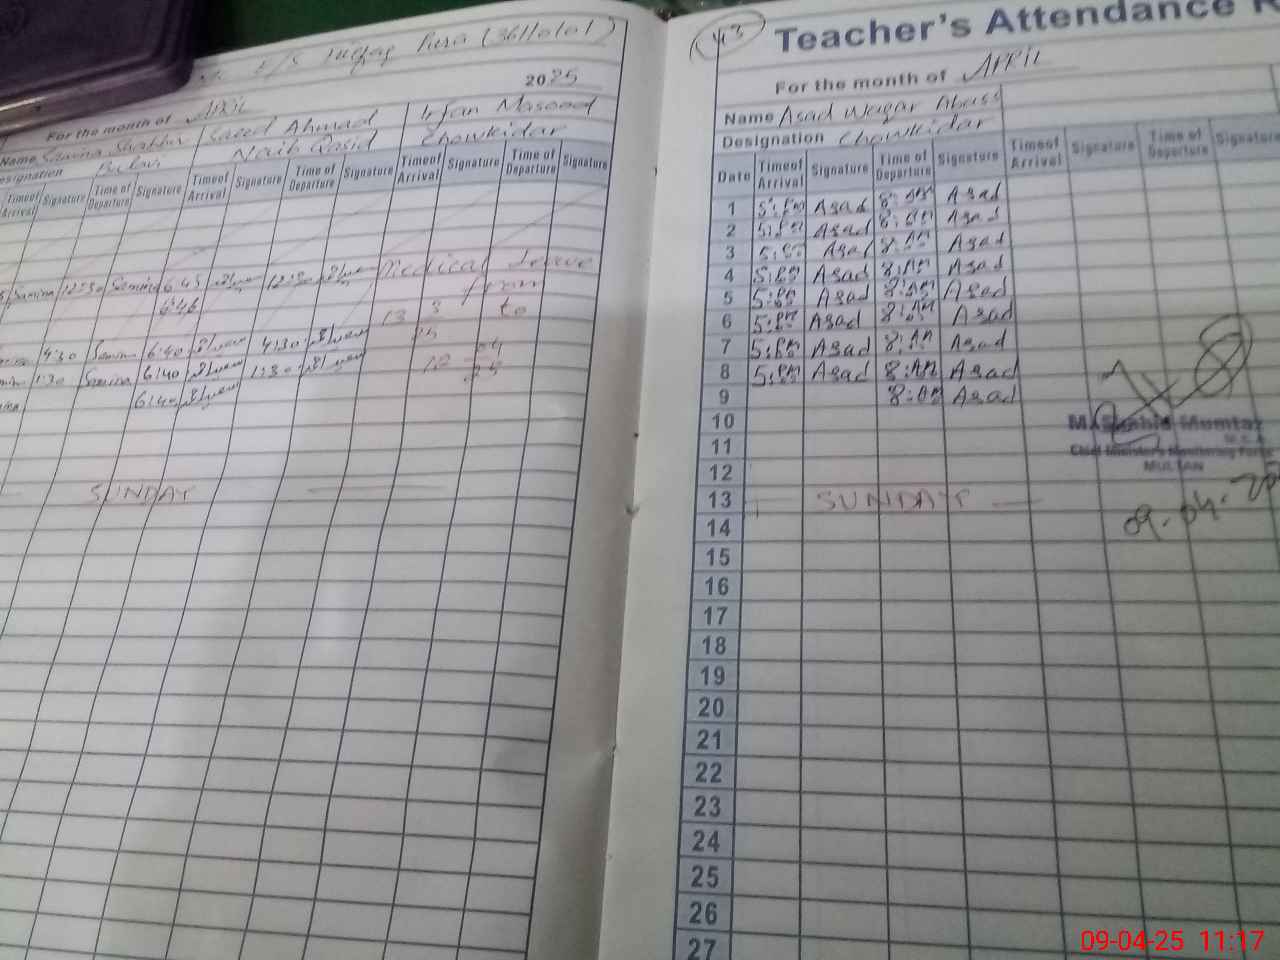 (36110101)
2025
For the month of April
Name Samina Shabbir Saeed Ahmad Irfan Masood
Designation Naib Qasid Chowkidar
Time of Arrival Signature Time of Departure Signature Time of Arrival Signature Time of Departure Signature Time of Arrival Signature Time of Departure Signature
Samina 12:30 Samina 6:45 12:30 Medical Leave
6:46 from
13 3 to
25
4:30 Samina 6:40 4:30
1:30 Samina 6:40 1:30
6:40
SUNDAY
43
Teacher's Attendance
For the month of April
Name Asad Waqar Abass
Designation Chowkidar
Date Time of Arrival Signature Time of Departure Signature Time of Arrival Signature Time of Departure Signature
1 5:PM Asad 8:AM Asad
2 5:PM Asad 8:AM Asad
3 5:PM Asad 8:AM Asad
4 5:PM Asad 8:AM Asad
5 5:PM Asad 8:AM Asad
6 5:PM Asad 8:AM Asad
7 5:PM Asad 8:AM Asad
8 5:PM Asad 8:AM Asad
9 8:AM Asad
10
M. Shahid Mumtaz
11
Chief Minister's Monitoring Force
12
MULTAN
13 SUNDAY
09.04.25
14
15
16
17
18
19
20
21
22
23
24
25
26
27
09-04-25 11:17